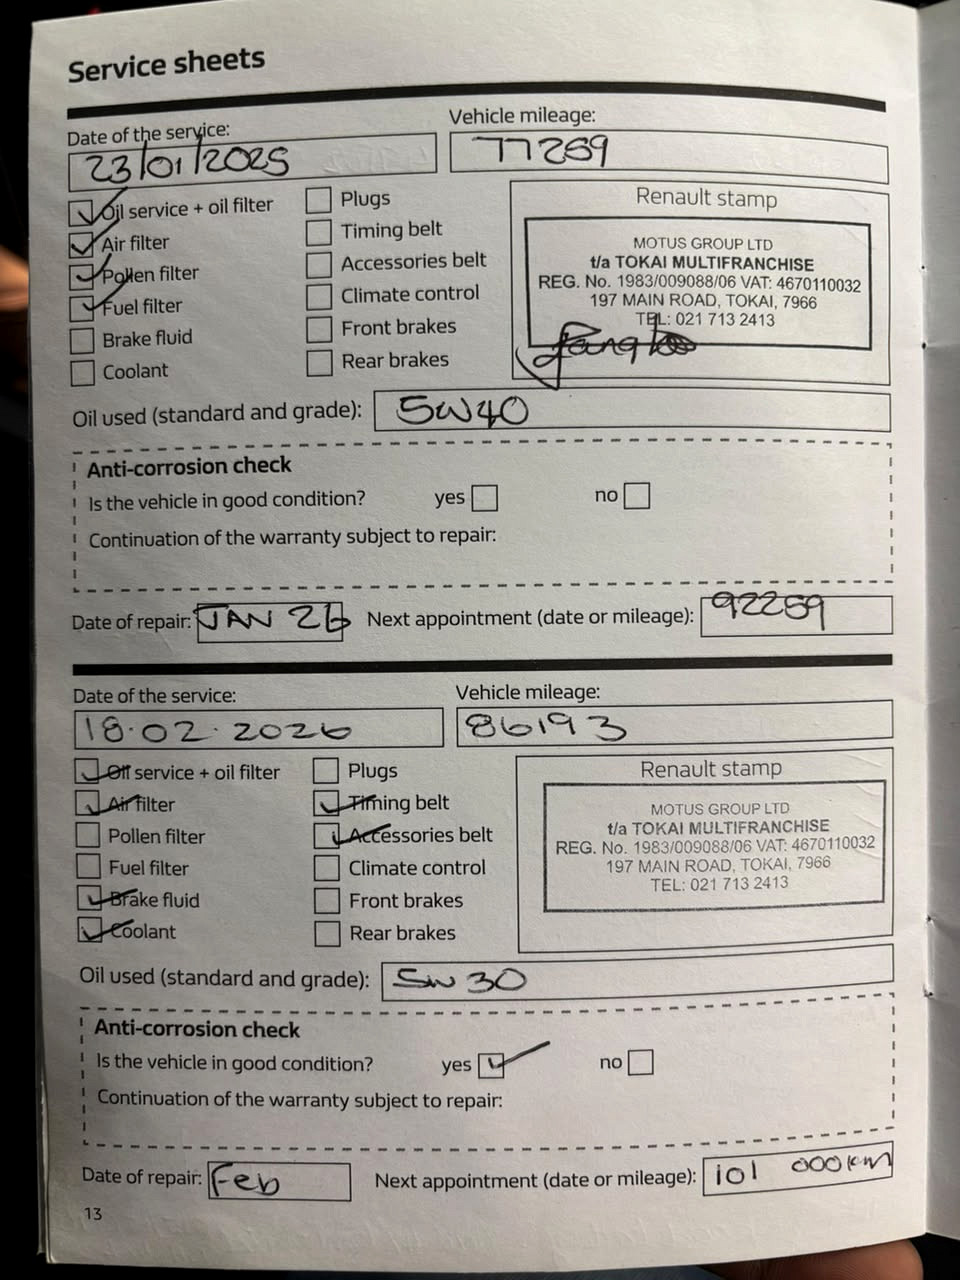 Service sheets
Date of the service:
23/01/2025
Vehicle mileage:
77259
Oil service + oil filter
Air filter
Pollen filter
Fuel filter
Brake fluid
Coolant
Plugs
Timing belt
Accessories belt
Climate control
Front brakes
Rear brakes
Renault stamp
MOTUS GROUP LTD
t/a TOKAI MULTIFRANCHISE
REG. No. 1983/009088/06 VAT: 4670110032
197 MAIN ROAD, TOKAI, 7966
TEL: 021 713 2413
Oil used (standard and grade): 5W40
Anti-corrosion check
Is the vehicle in good condition? yes no
Continuation of the warranty subject to repair:
Date of repair: JAN 26 Next appointment (date or mileage): 92259
Date of the service:
18.02.2026
Vehicle mileage:
86193
Oil service + oil filter
Air filter
Pollen filter
Fuel filter
Brake fluid
Coolant
Plugs
Timing belt
Accessories belt
Climate control
Front brakes
Rear brakes
Renault stamp
MOTUS GROUP LTD
t/a TOKAI MULTIFRANCHISE
REG. No. 1983/009088/06 VAT: 4670110032
197 MAIN ROAD, TOKAI, 7966
TEL: 021 713 2413
Oil used (standard and grade): 5W 30
Anti-corrosion check
Is the vehicle in good condition? yes no
Continuation of the warranty subject to repair:
Date of repair: Feb Next appointment (date or mileage): 101 000km
13